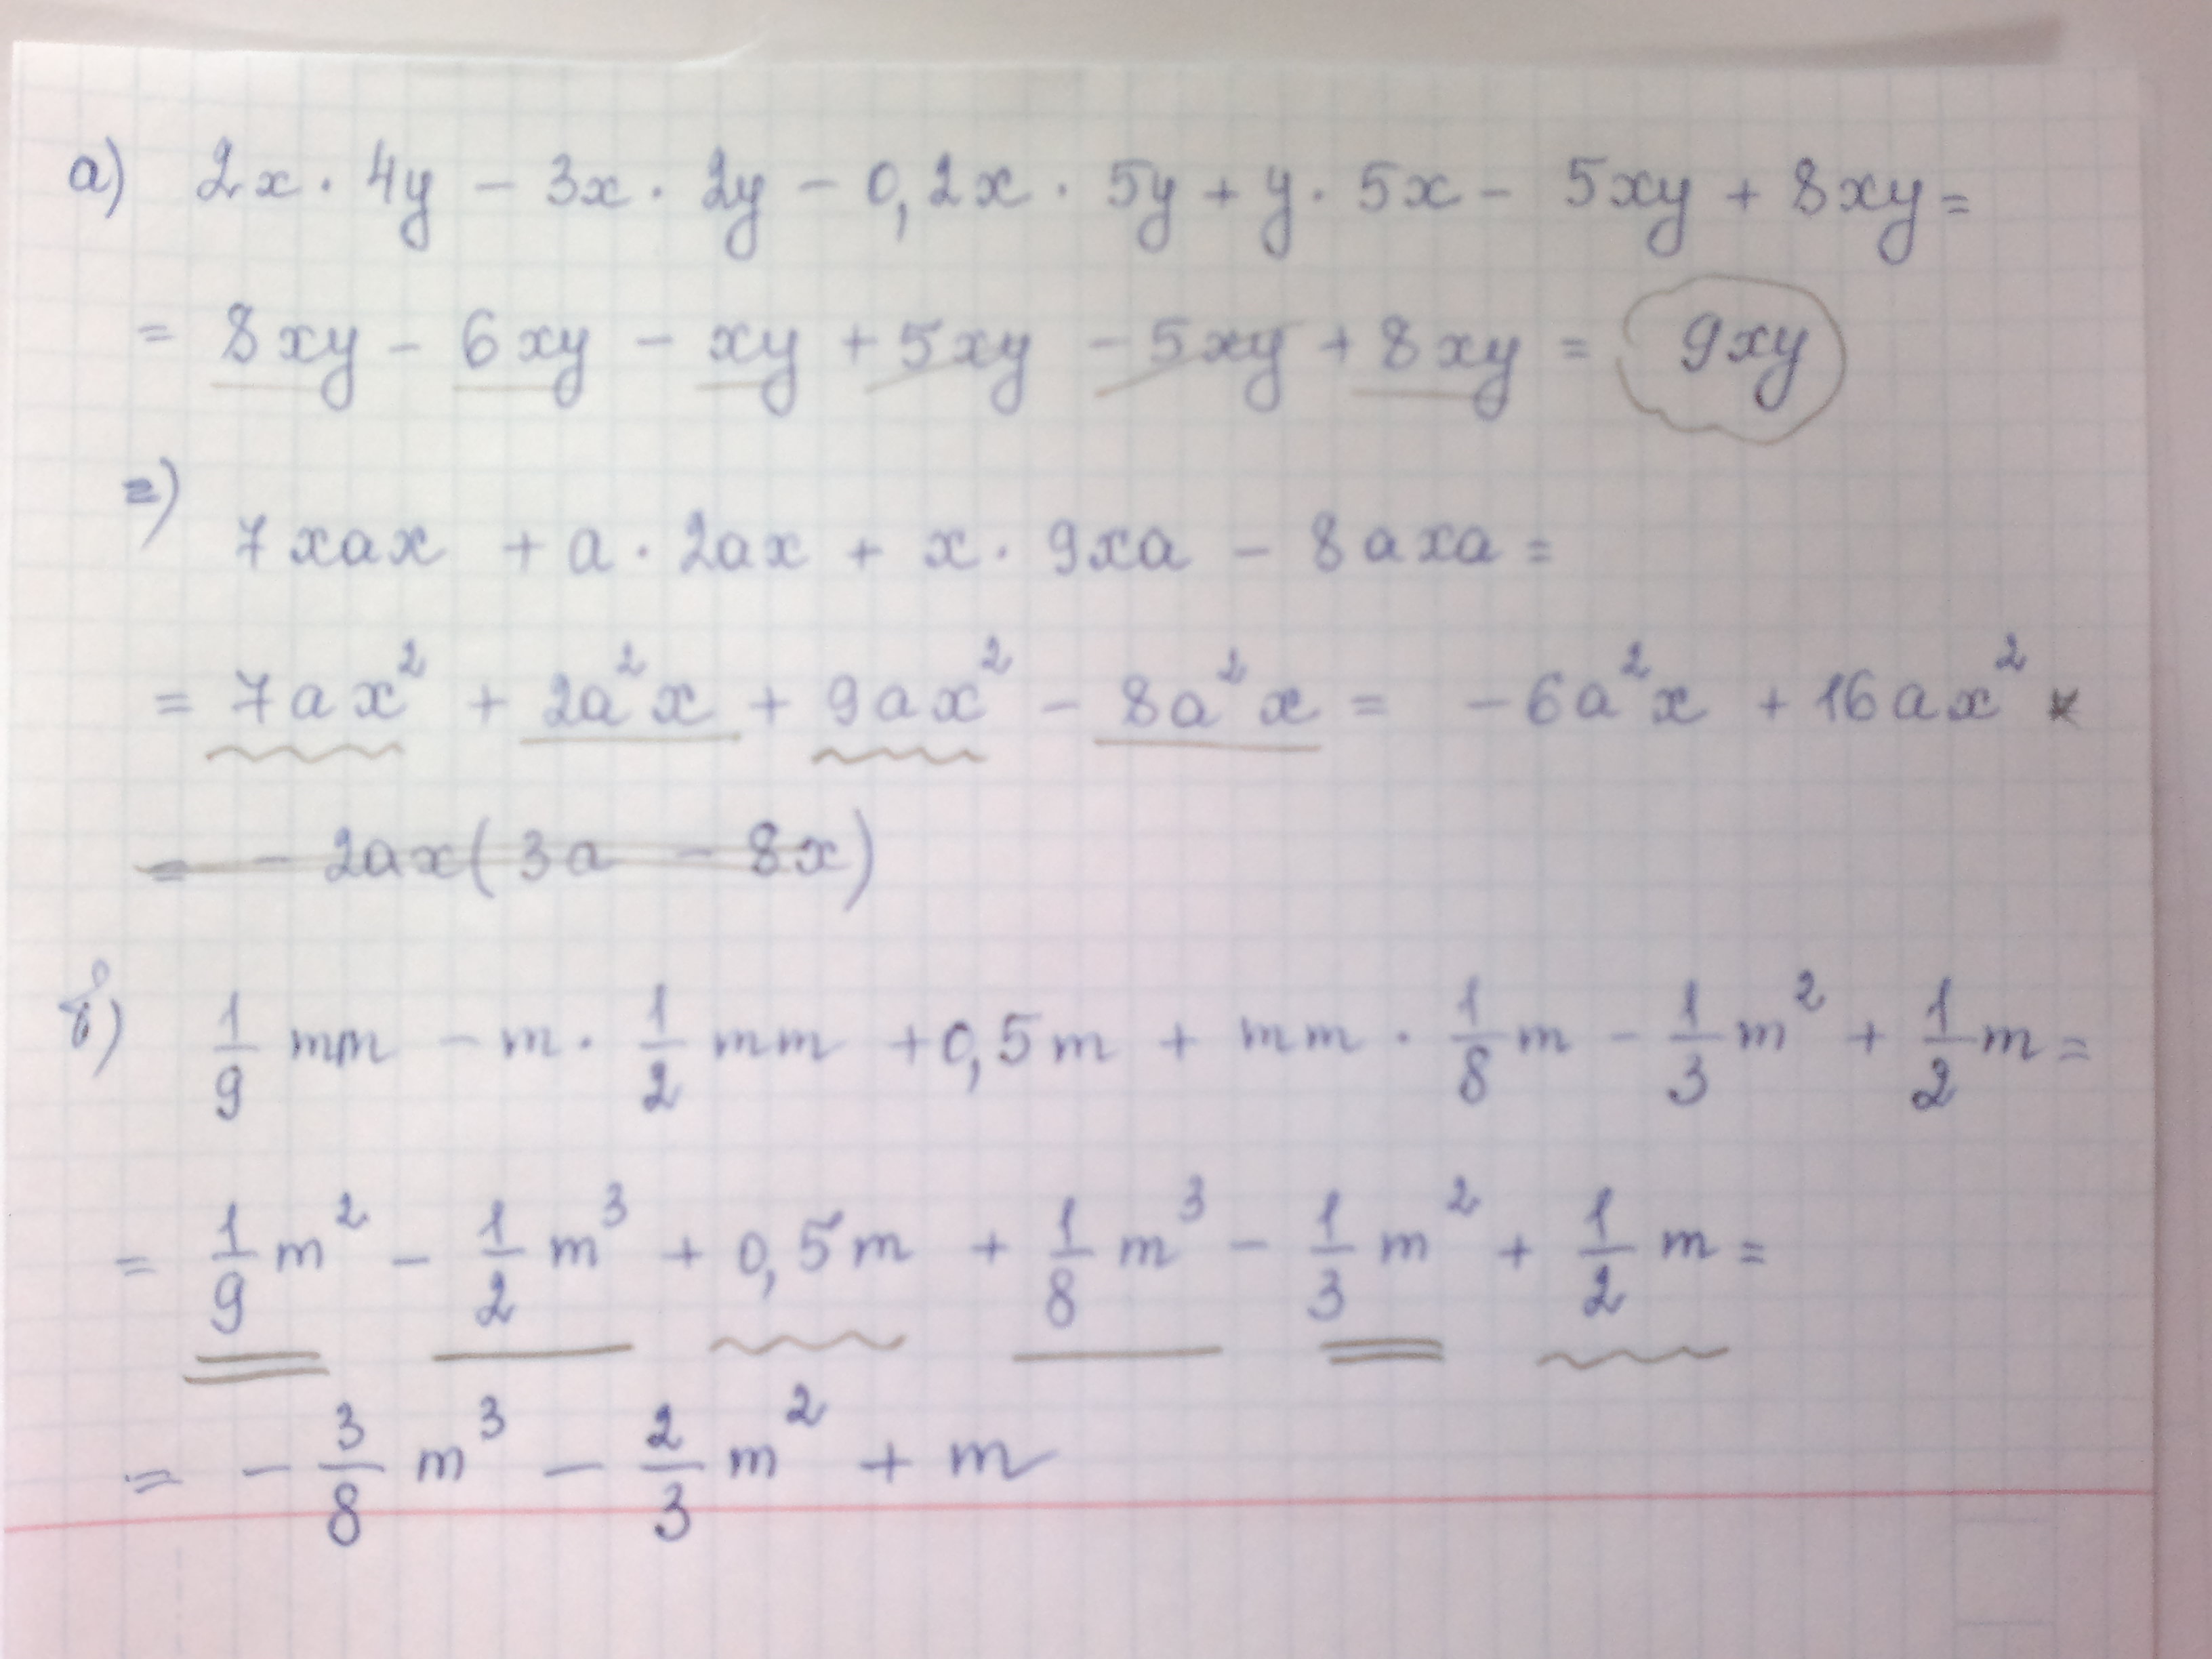 а) 2x · 4y − 3x · 2y − 0,2x · 5y + y · 5x − 5xy + 8xy =
= 8xy − 6xy − xy + 5xy − 5xy + 8xy = 9xy
г)
7xax + a · 2ax + x · 9xa − 8axa =
= 7ax² + 2a²x + 9ax² − 8a²x = −6a²x + 16ax²
= − 2ax(3a − 8x)
б) 1/9 mm − m · 1/2 mm + 0,5m + mm · 1/8 m − 1/3 m² + 1/2 m =
= 1/9 m² − 1/2 m³ + 0,5m + 1/8 m³ − 1/3 m² + 1/2 m =
= − 3/8 m³ − 2/3 m² + m